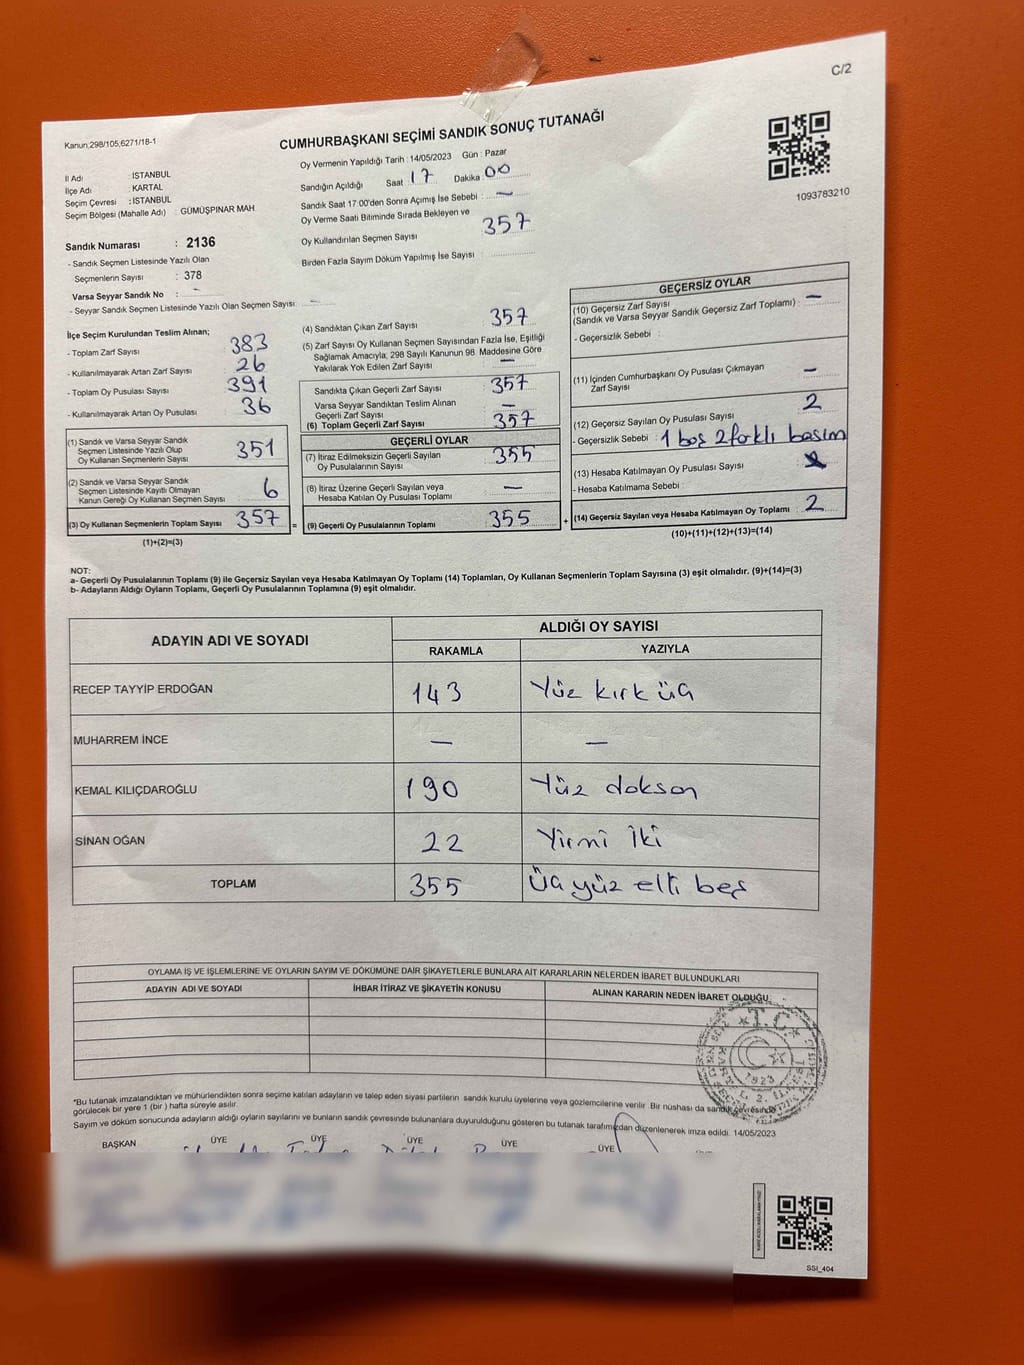 C/2
Kanun;298/105,6271/18-1
CUMHURBAŞKANI SEÇİMİ SANDIK SONUÇ TUTANAĞI
Oy Vermenin Yapıldığı Tarih : 14/05/2023 Gün : Pazar
1093783210
İl Adı : İSTANBUL
İlçe Adı : KARTAL
Seçim Çevresi : İSTANBUL
Seçim Bölgesi (Mahalle Adı) : GÜMÜŞPINAR MAH
Sandığın Açıldığı Saat 17 Dakika 00
Sandık Saat 17:00'den Sonra Açımış İse Sebebi : —
Oy Verme Saati Bitiminde Sırada Bekleyen ve
Oy Kullandırılan Seçmen Sayısı : 357
Birden Fazla Sayım Döküm Yapılmış İse Sayısı :
Sandık Numarası : 2136
- Sandık Seçmen Listesinde Yazılı Olan
Seçmenlerin Sayısı : 378
Varsa Seyyar Sandık No : -
- Seyyar Sandık Seçmen Listesinde Yazılı Olan Seçmen Sayısı: —
İlçe Seçim Kurulundan Teslim Alınan;
- Toplam Zarf Sayısı 383
- Kullanılmayarak Artan Zarf Sayısı 26
- Toplam Oy Pusulası Sayısı 391
- Kullanılmayarak Artan Oy Pusulası 36
(1) Sandık ve Varsa Seyyar Sandık
Seçmen Listesinde Yazılı Olup
Oy Kullanan Seçmenlerin Sayısı 351
(2) Sandık ve Varsa Seyyar Sandık
Seçmen Listesinde Kayıtlı Olmayan
Kanun Gereği Oy Kullanan Seçmen Sayısı 6
(3) Oy Kullanan Seçmenlerin Toplam Sayısı 357 =
(1)+(2)=(3)
(4) Sandıktan Çıkan Zarf Sayısı 357
(5) Zarf Sayısı Oy Kullanan Seçmen Sayısından Fazla İse, Eşitliği
Sağlamak Amacıyla; 298 Sayılı Kanunun 98. Maddesine Göre
Yakılarak Yok Edilen Zarf Sayısı —
Sandıkta Çıkan Geçerli Zarf Sayısı 357
Varsa Seyyar Sandıktan Teslim Alınan
Geçerli Zarf Sayısı —
(6) Toplam Geçerli Zarf Sayısı 357
GEÇERLİ OYLAR
(7) İtiraz Edilmeksizin Geçerli Sayılan
Oy Pusulalarının Sayısı 355
(8) İtiraz Üzerine Geçerli Sayılan veya
Hesaba Katılan Oy Pusulası Toplamı —
(9) Geçerli Oy Pusulalarının Toplamı 355 +
GEÇERSİZ OYLAR
(10) Geçersiz Zarf Sayısı
(Sandık ve Varsa Seyyar Sandık Geçersiz Zarf Toplamı) : —
- Geçersizlik Sebebi :
(11) İçinden Cumhurbaşkanı Oy Pusulası Çıkmayan
Zarf Sayısı —
(12) Geçersiz Sayılan Oy Pusulası Sayısı 2
- Geçersizlik Sebebi : 1 boş 2 farklı basım
(13) Hesaba Katılmayan Oy Pusulası Sayısı
- Hesaba Katılmama Sebebi :
(14) Geçersiz Sayılan veya Hesaba Katılmayan Oy Toplamı : 2
(10)+(11)+(12)+(13)=(14)
NOT:
a- Geçerli Oy Pusulalarının Toplamı (9) ile Geçersiz Sayılan veya Hesaba Katılmayan Oy Toplamı (14) Toplamları, Oy Kullanan Seçmenlerin Toplam Sayısına (3) eşit olmalıdır. (9)+(14)=(3)
b- Adayların Aldığı Oyların Toplamı, Geçerli Oy Pusulalarının Toplamına (9) eşit olmalıdır.
ADAYIN ADI VE SOYADI ALDIĞI OY SAYISI
RAKAMLA YAZIYLA
RECEP TAYYİP ERDOĞAN 143 Yüz kırk üç
MUHARREM İNCE — —
KEMAL KILIÇDAROĞLU 190 Yüz doksan
SİNAN OĞAN 22 Yirmi iki
TOPLAM 355 Üç yüz elli beş
OYLAMA İŞ VE İŞLEMLERİNE VE OYLARIN SAYIM VE DÖKÜMÜNE DAİR ŞİKAYETLERLE BUNLARA AİT KARARLARIN NELERDEN İBARET BULUNDUKLARI
ADAYIN ADI VE SOYADI İHBAR İTİRAZ VE ŞİKAYETİN KONUSU ALINAN KARARIN NEDEN İBARET OLDUĞU
T.C.
1923
*Bu tutanak imzalandıktan ve mühürlendikten sonra seçime katılan adayların ve talep eden siyasi partilerin sandık kurulu üyelerine veya gözlemcilerine verilir. Bir nüshası da sandık çevresinde
görülecek bir yere 1 (bir ) hafta süreyle asılır.
Sayım ve döküm sonucunda adayların aldığı oyların sayılarını ve bunların sandık çevresinde bulunanlara duyurulduğunu gösteren bu tutanak tarafımızdan düzenlenerek imza edildi. 14/05/2023
BAŞKAN ÜYE ÜYE ÜYE ÜYE ÜYE
SSI_404